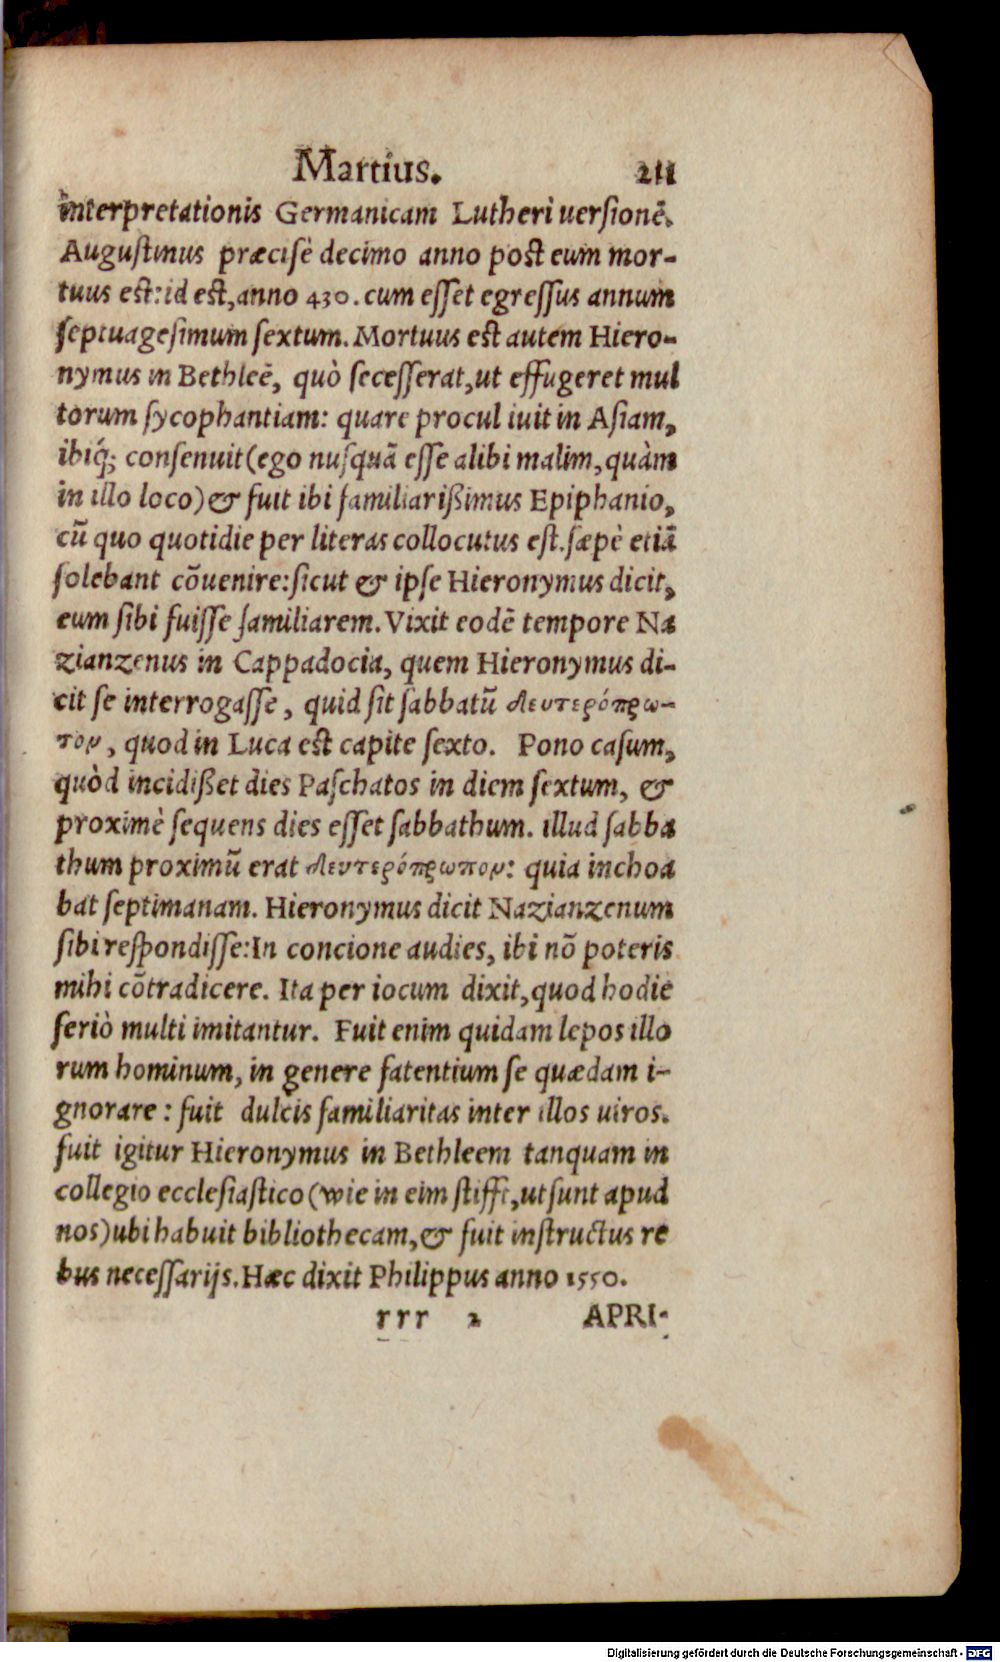 Martius. 211
interpretationis Germanicam Lutheri uersionẽ.
Augustinus præcisè decimo anno post eum mor-
tuus est: id est, anno 430. cum esset egressus annum
septuagesimum sextum. Mortuus est autem Hiero-
nymus in Bethleẽ, quò secesserat, ut effugeret mul
torum sycophantiam: quare procul iuit in Asiam,
ibiq́; consenuit (ego nusquã esse alibi malim, quàm
in illo loco) & fuit ibi familiarißimus Epiphanio,
cũ quo quotidie per literas collocutus est. sæpè etiã
solebant cõuenire: sicut & ipse Hieronymus dicit,
eum sibi fuisse familiarem. Vixit eodẽ tempore Na
zianzenus in Cappadocia, quem Hieronymus di-
cit se interrogasse, quid sit sabbatũ δευτερόπρω-
τον, quod in Luca est capite sexto. Pono casum,
quòd incidißet dies Paschatos in diem sextum, &
proximè sequens dies esset sabbathum. illud sabba
thum proximũ erat δευτερόπρωπον: quia inchoa
bat septimanam. Hieronymus dicit Nazianzenum
sibi respondisse: In concione audies, ibi nõ poteris
mihi cõtradicere. Ita per iocum dixit, quod hodie
seriò multi imitantur. Fuit enim quidam lepos illo
rum hominum, in genere fatentium se quædam i-
gnorare: fuit dulcis familiaritas inter illos uiros.
fuit igitur Hieronymus in Bethleem tanquam in
collegio ecclesiastico (wie in eim stifft, ut sunt apud
nos) ubi habuit bibliothecam, & fuit instructus re
bus necessarijs. Hæc dixit Philippus anno 1550.
rrr 2 APRI-
Digitalisierung gefördert durch die Deutsche Forschungsgemeinschaft - DFG